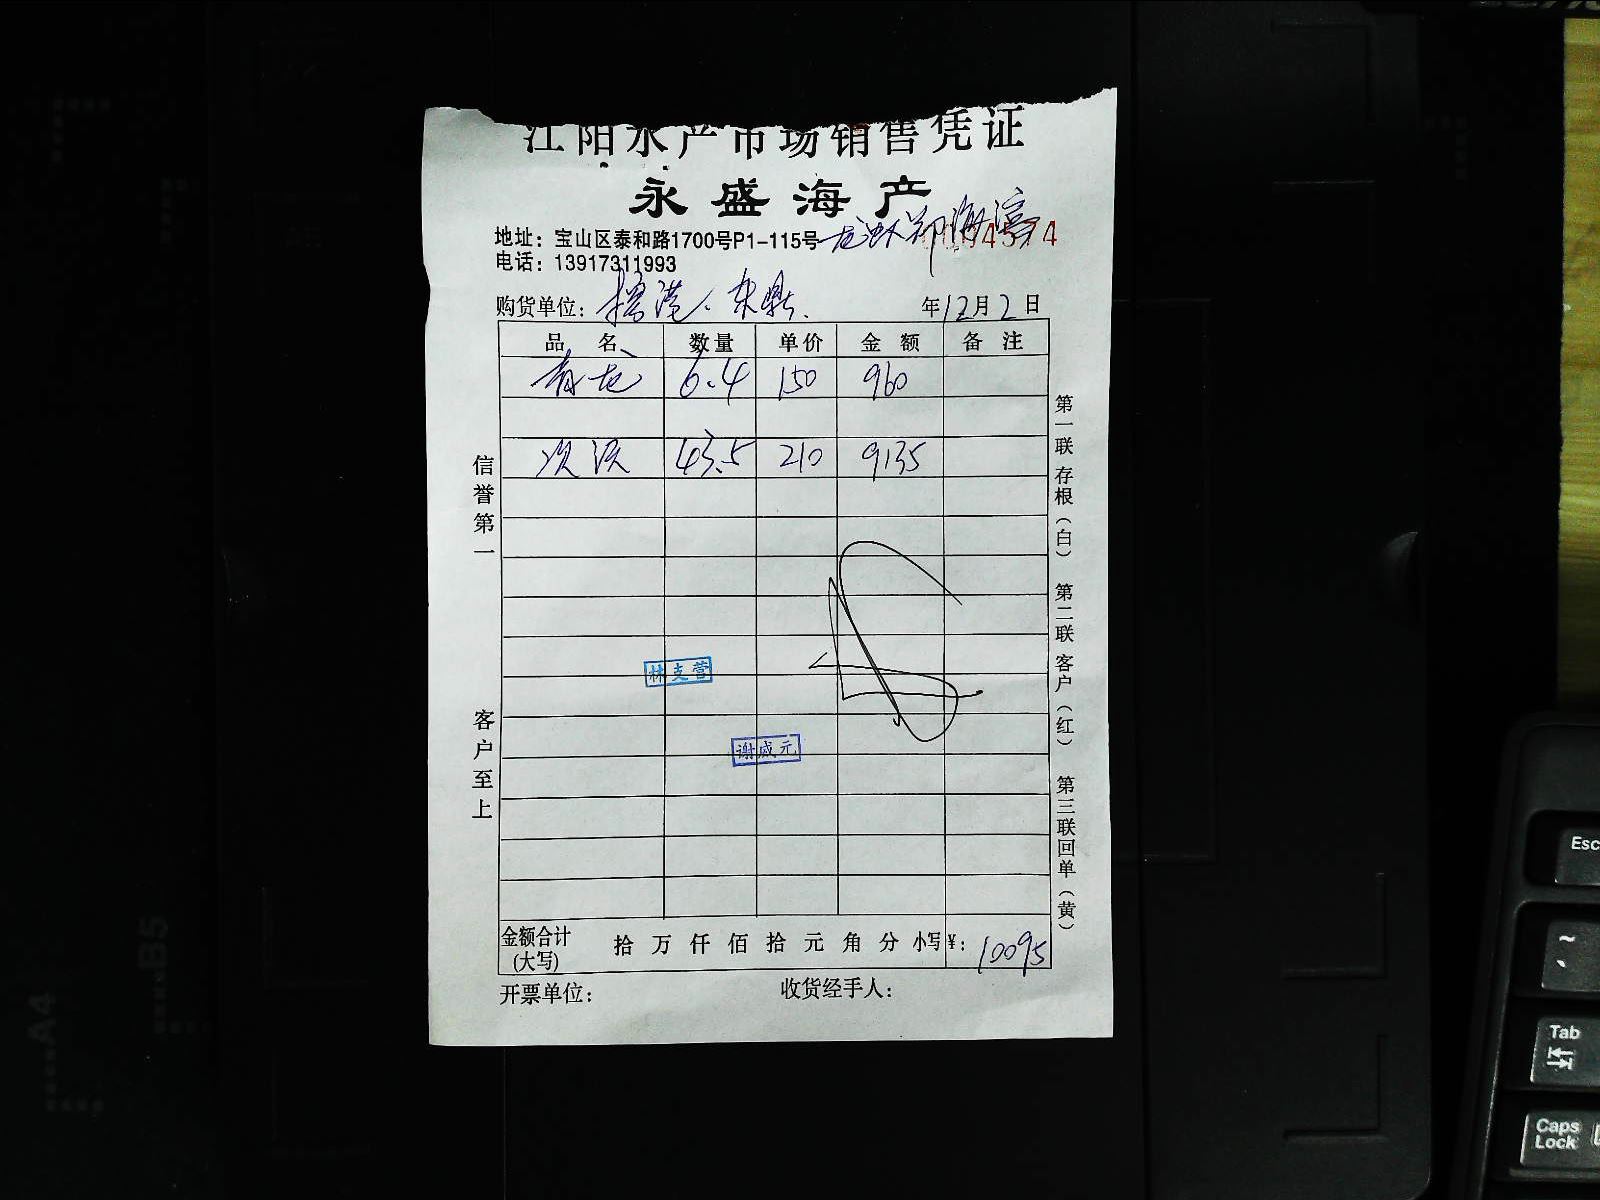 江阳水产市场销售凭证
永盛海产
地址：宝山区泰和路1700号P1-115号
电话：13917311993
购货单位： 年12月2日
品 名 数量 单价 金 额 备 注
青龙 6.4 150 960
43.5 210 9135
信誉第一
客户至上
第一联 存根（白） 第二联 客户（红） 第三联回单（黄）
林支营
谢成元
金额合计(大写) 拾 万 仟 佰 拾 元 角 分 小写¥：10095
开票单位： 收货经手人：
Esc
~
Tab
Caps Lock
A4
B5